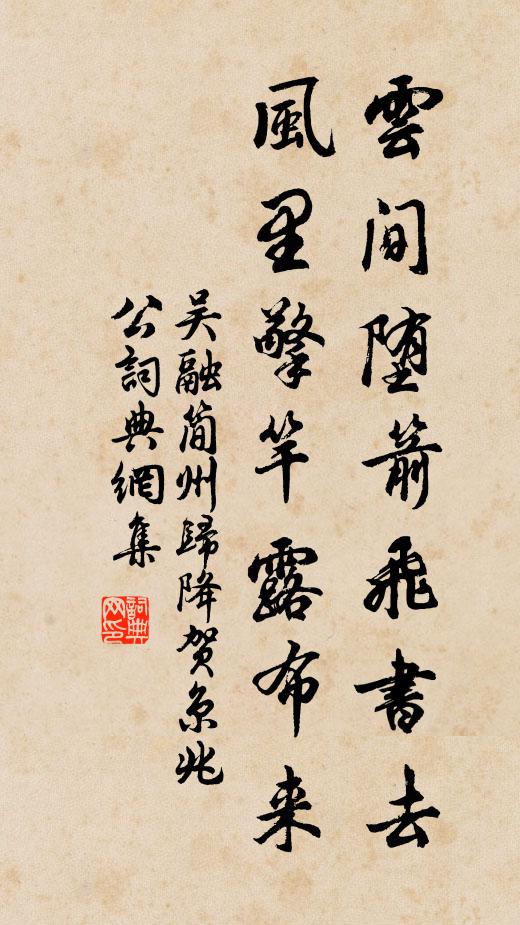 雲間墮箭飛書去
風里擎竿露布来
吴融簡州歸降賀京兆
公詞典網集
詞典网印